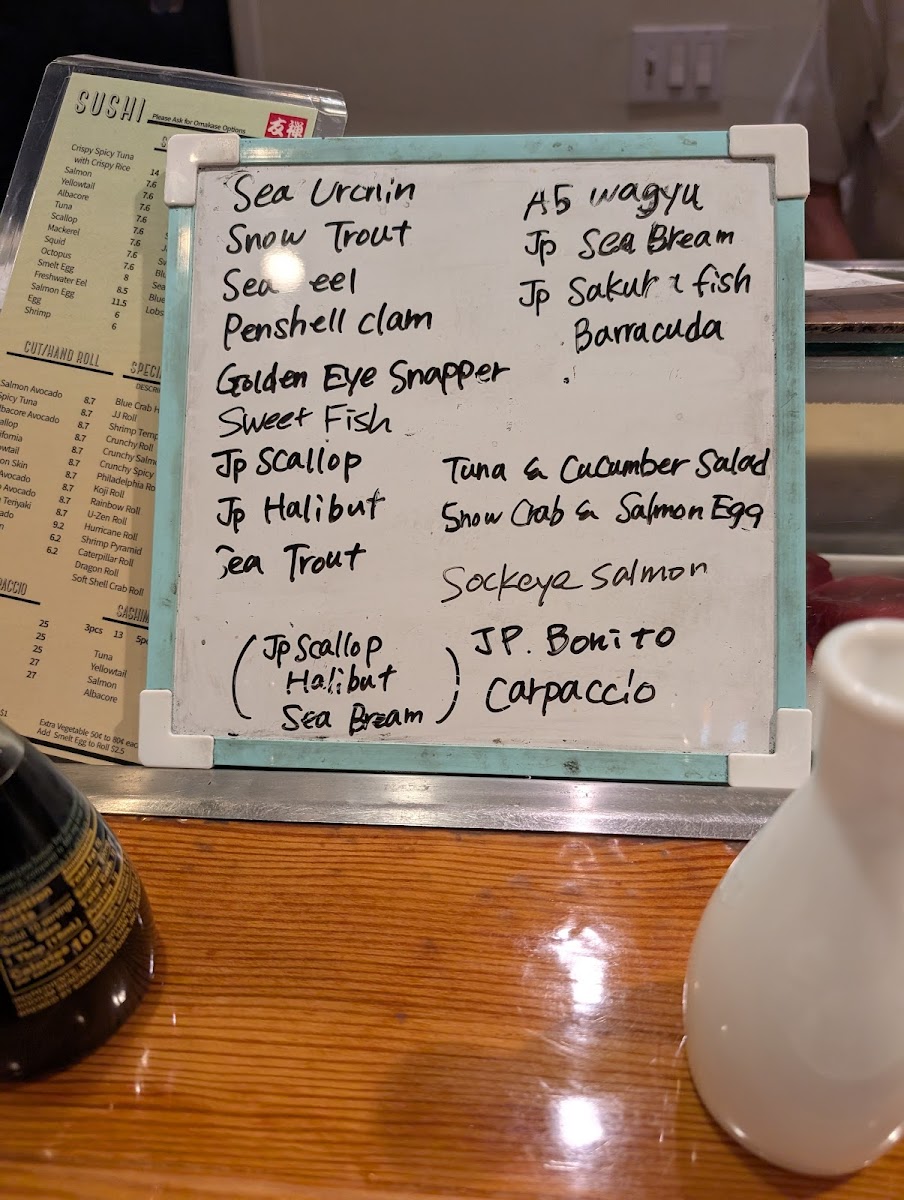 SUSHI
Please Ask for Omakase Options
友禅
Crispy Spicy Tuna
with Crispy Rice 14
Salmon 7.6
Yellowtail 7.6
Albacore 7.6
Tuna 7.6
Scallop 7.6
Mackerel 7.6
Squid 7.6
Octopus 8
Smelt Egg 8.5
Freshwater Eel 11.5
Salmon Egg 6
Egg 6
Shrimp
CUT/HAND ROLL
Salmon Avocado 8.7
Spicy Tuna 8.7
Albacore Avocado 8.7
8.7
8.7
8.7
8.7
8.7
on Skin 8.7
Avocado 8.7
Avocado 8.7
Teriyaki 9.2
6.2
6.2
SPECI
DESCRI
Blue Crab H
JJ Roll
Shrimp Temp
Crunchy Roll
Crunchy Salm
Crunchy Spicy
Philadelphia Ro
Koji Roll
Rainbow Roll
U-Zen Roll
Hurricane Roll
Shrimp Pyramid
Caterpillar Roll
Dragon Roll
Soft Shell Crab Roll
PACCIO
25
25
25
27
27
SASHIM
3pcs 13 5pc
Tuna
Yellowtail
Salmon
Albacore
$1
Extra Vegetable 50¢ to 80¢ each
Add Smelt Egg to Roll $2.5
Sea Urchin
Snow Trout
Sea eel
Penshell clam
Golden Eye Snapper
Sweet Fish
Jp Scallop
Jp Halibut
Sea Trout
(Jp Scallop
Halibut
Sea Bream)
A5 wagyu
Jp Sea Bream
Jp Sakura fish
Barracuda
Tuna & Cucumber Salad
Snow Crab & Salmon Egg
Sockeye Salmon
JP. Bonito
Carpaccio